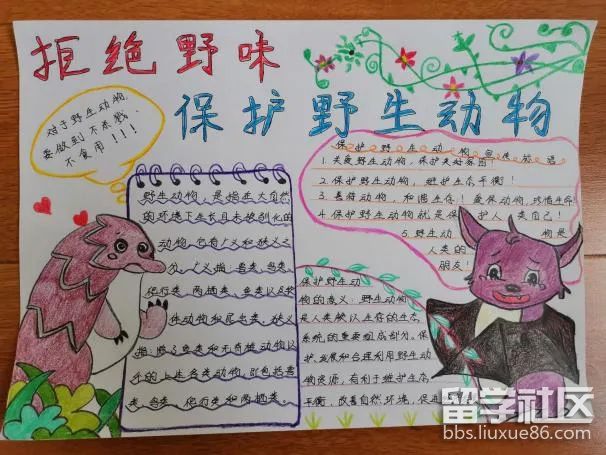 拒绝野味
保护野生动物
对于野生动物
要做到不杀戮
不食用!!!
野生动物,是指生大自然
的环境下生长且未被驯化的
动物。它有广义和狭义之
分。广义指:兽类、鸟类、
爬行类、两栖类、鱼类以及软
体动物和昆虫类。狭义
指:除了鱼类和无脊椎动物以
外的上生各类动物,即包括兽
类、鸟类、爬行类和两栖类。
保护野生动物宣传标语
1.关爱野生动物,保护美好家园!
2.保护野生动物,维护生态平衡!
3.善待动物,和谐生存!爱保动物,珍惜生命!
4.保护野生动物就是保护人类自己!
5.野生动物是
人类的
朋友!
保护野生动
物的意义:野生动物
是人类赖以生存的生态
系统的重要组成部分。保
护、发展和合理利用野生动
物资源,有利于维护生态
平衡,改善自然环境,促进
留学社区
bbs.liuxue86.com